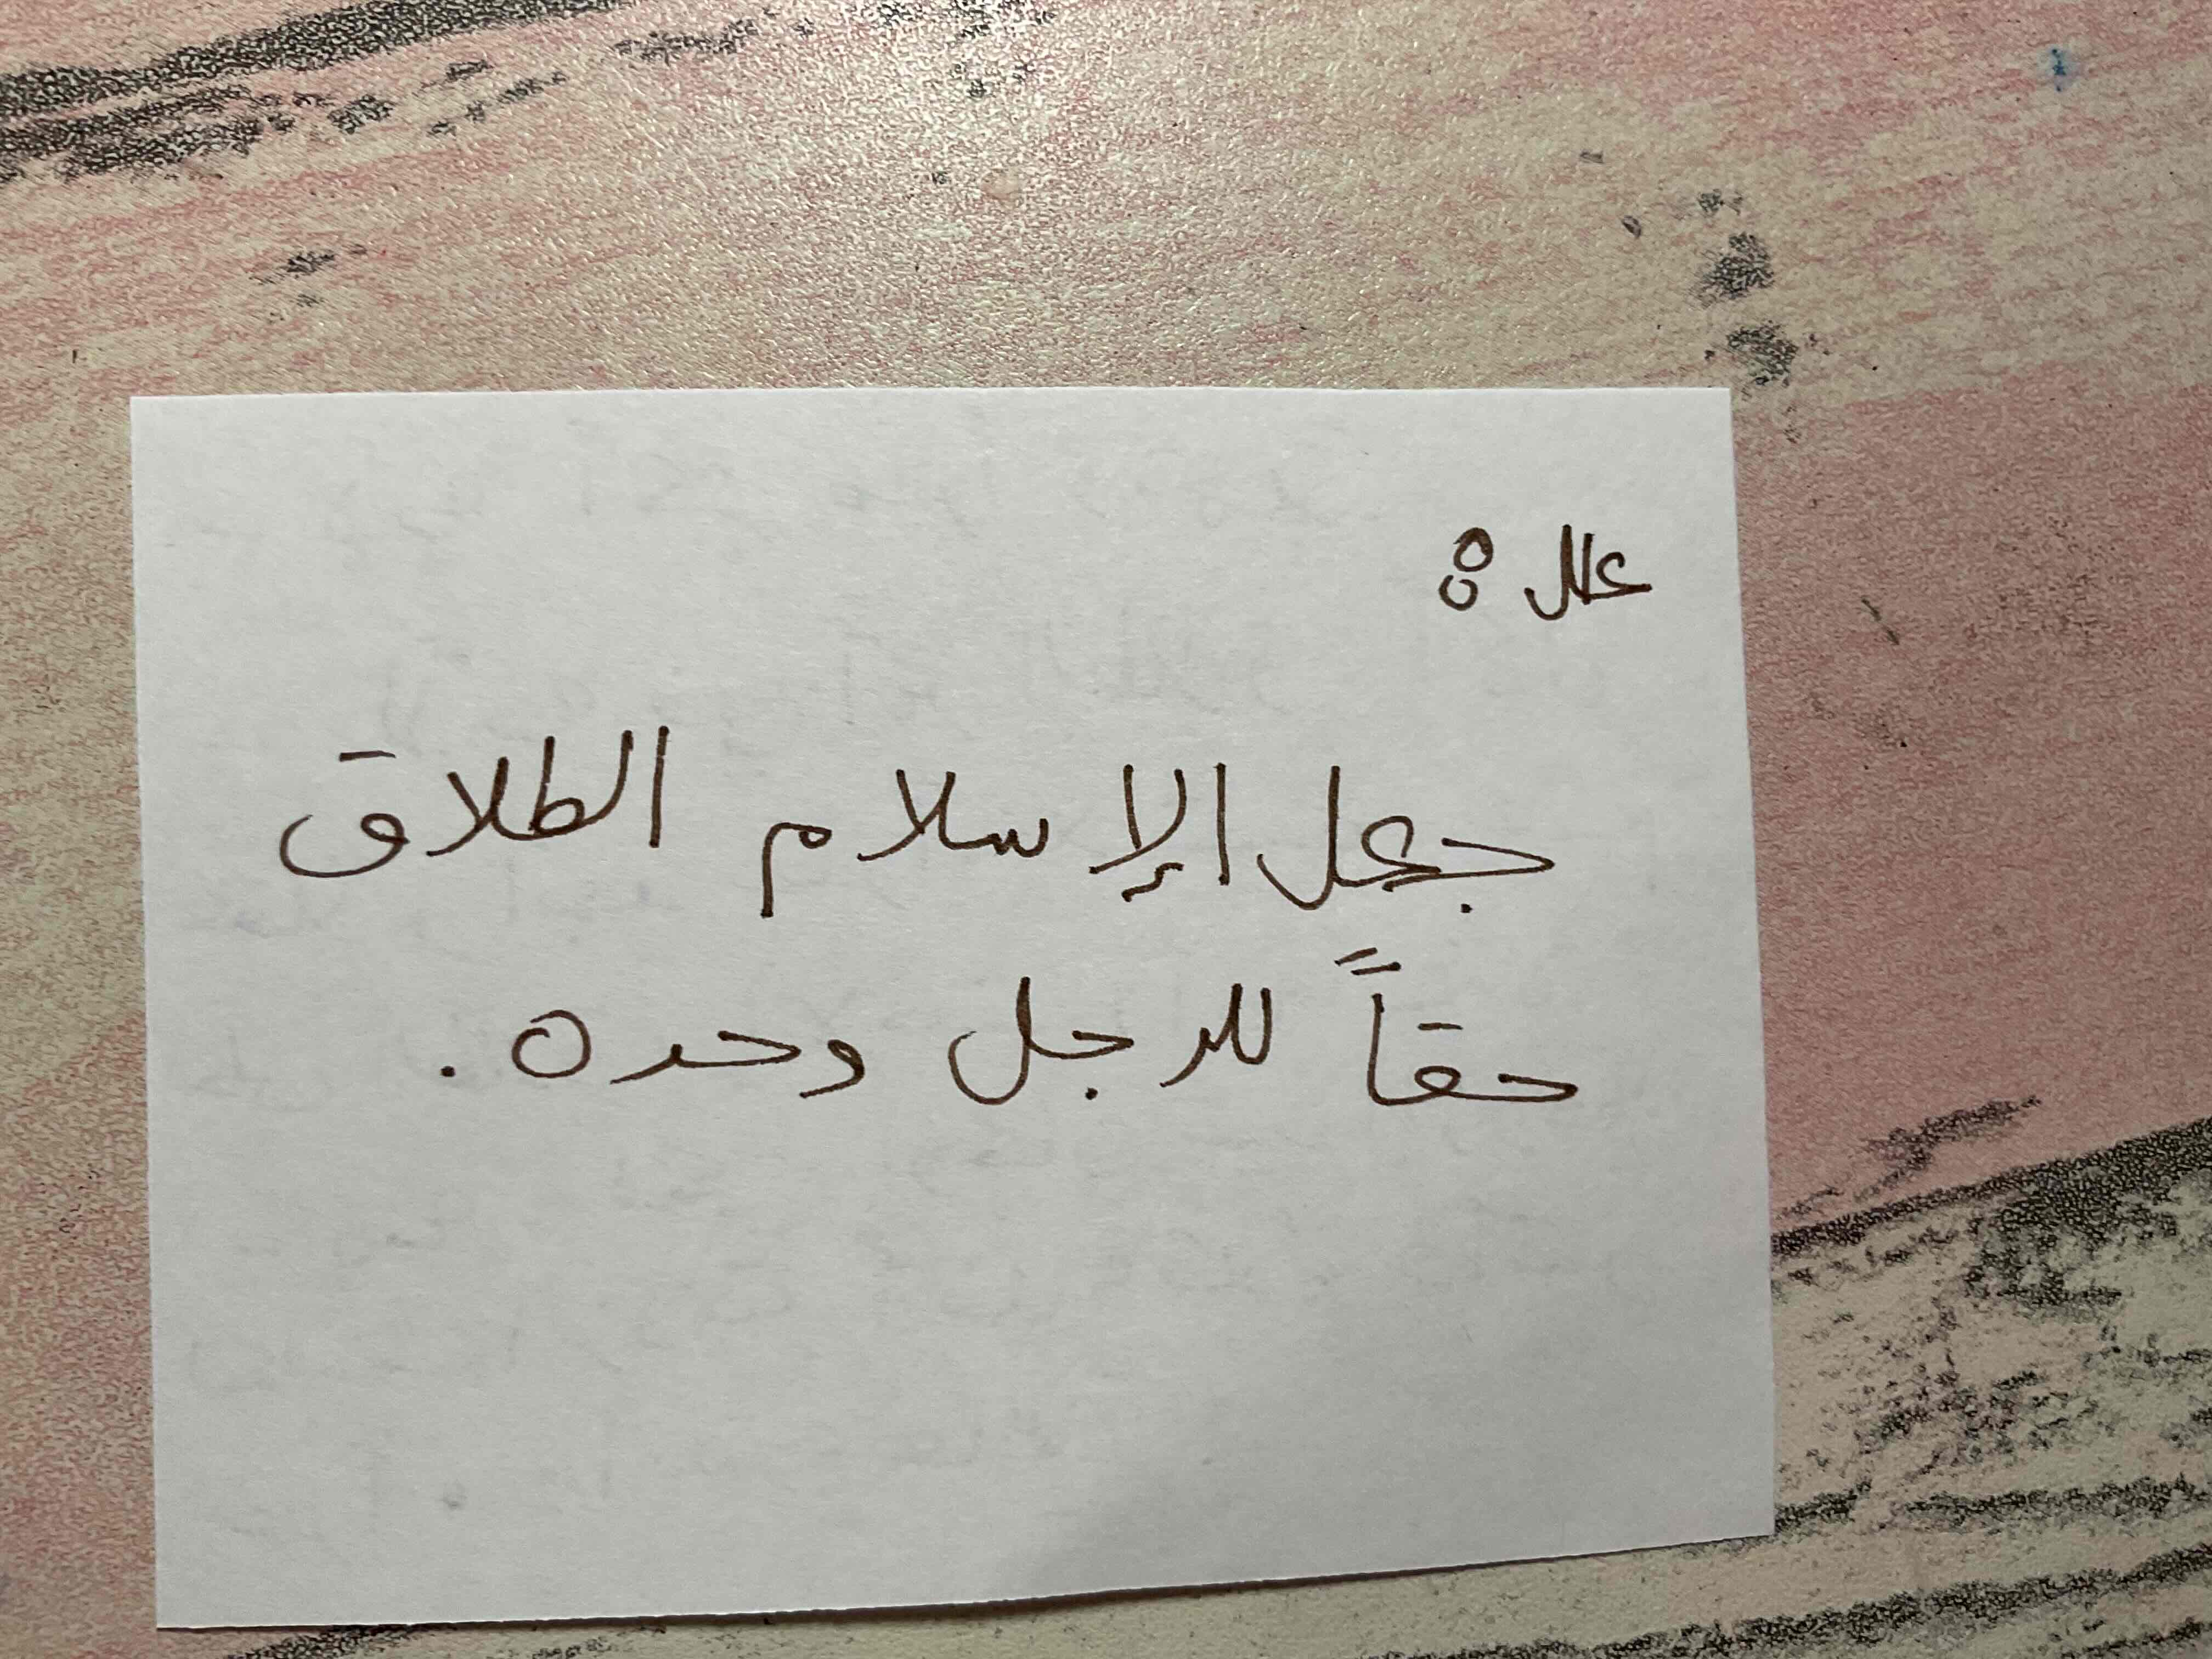 علل :
جعل الإسلام الطلاق
حقاً للرجل وحده .